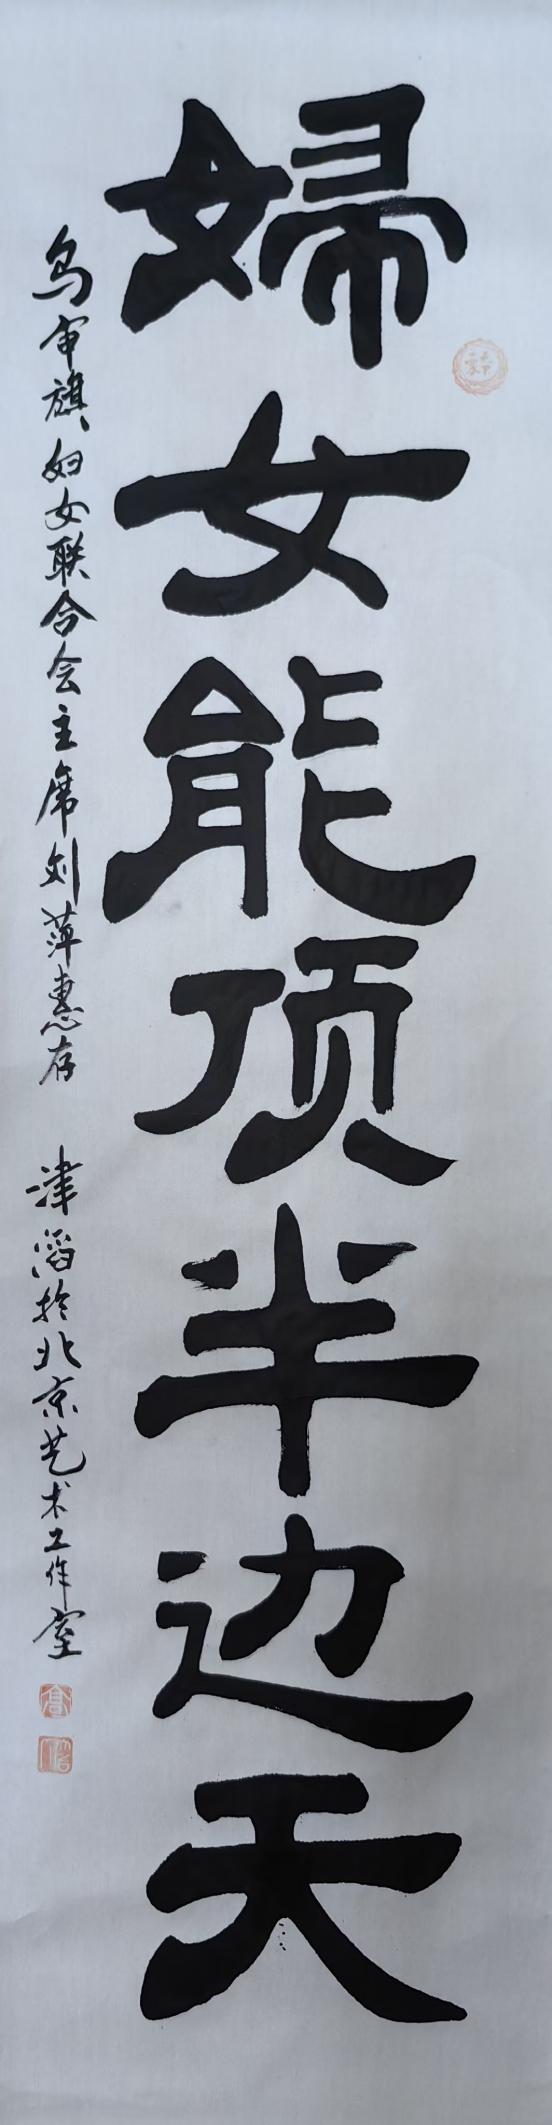 婦女能顶半边天
乌审旗妇女联合会主席刘萍惠存 津滔於北京艺术工作室